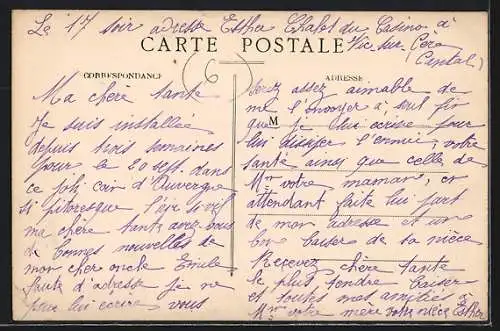 Le 17 soir adresse Esther Chalet du Casino à
Vic sur Cère
Cantal)
CARTE POSTALE
6
CORRESPONDANCE
Ma chère tante
Je suis installée
depuis trois semaines
pour le 20 sept. dans
ce joli coin d'Auvergne
si pittoresque l'air si vif
ma chère tante avez vous
de bonnes nouvelles de
mon cher oncle Emile
faute d'adresse je ne
peux lui écrire vous
ADRESSE
serez assez aimable de
me l'envoyer à seul fin
M
que je lui écrive pour
lui dissiper l'ennui, votre
santé ainsi que celle de
Mme votre maman, en
attendant faite lui part
de mon adresse et un
bon baiser de sa nièce
Recevez chère tante
le plus tendre baiser
et toutes mes amitiés à
Mme votre mère votre nièce Esther